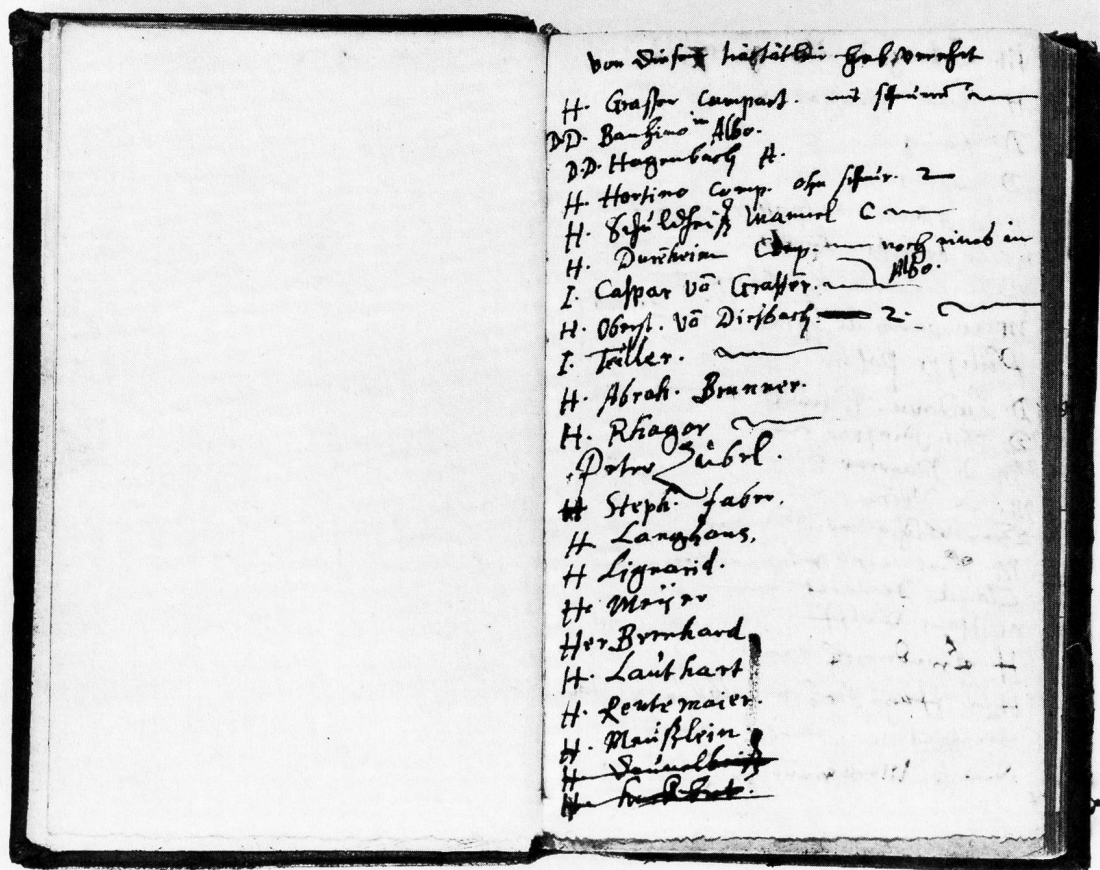 von diesem tractätlein hab verehrt
H. Grasser Compact. mit schnüren
DD. Bauhino in Albo.
D.D. Hagenbach A.
H. Hortino Comp. ohn schnür. 2
H. Schuldheiß Manuel C
H. Durrheim Comp. noch eines in Albo.
I. Caspar vō Graffēr.
H. Oberst. vō Diesbach 2.
I. Teiller.
H. Abrah. Brunner.
H. Rhagor
Peter Zübel.
H Steph. faber.
H Langhans.
H Lignarid.
H. Meÿer
Her Bernhard
H. Lauthart
H. Rentemaier.
H. Meüslein